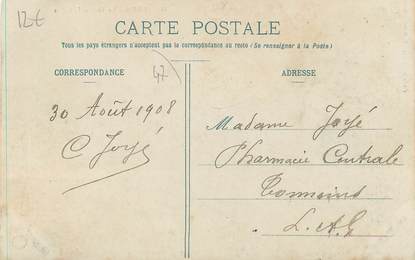 12€
CARTE POSTALE
Tous les pays étrangers n'acceptent pas la correspondance au recto (Se renseigner à la Poste)
CORRESPONDANCE
47
ADRESSE
30 Août 1908
C Joyé
Madame Joyé
Pharmacie Centrale
Tonneins
L.&G